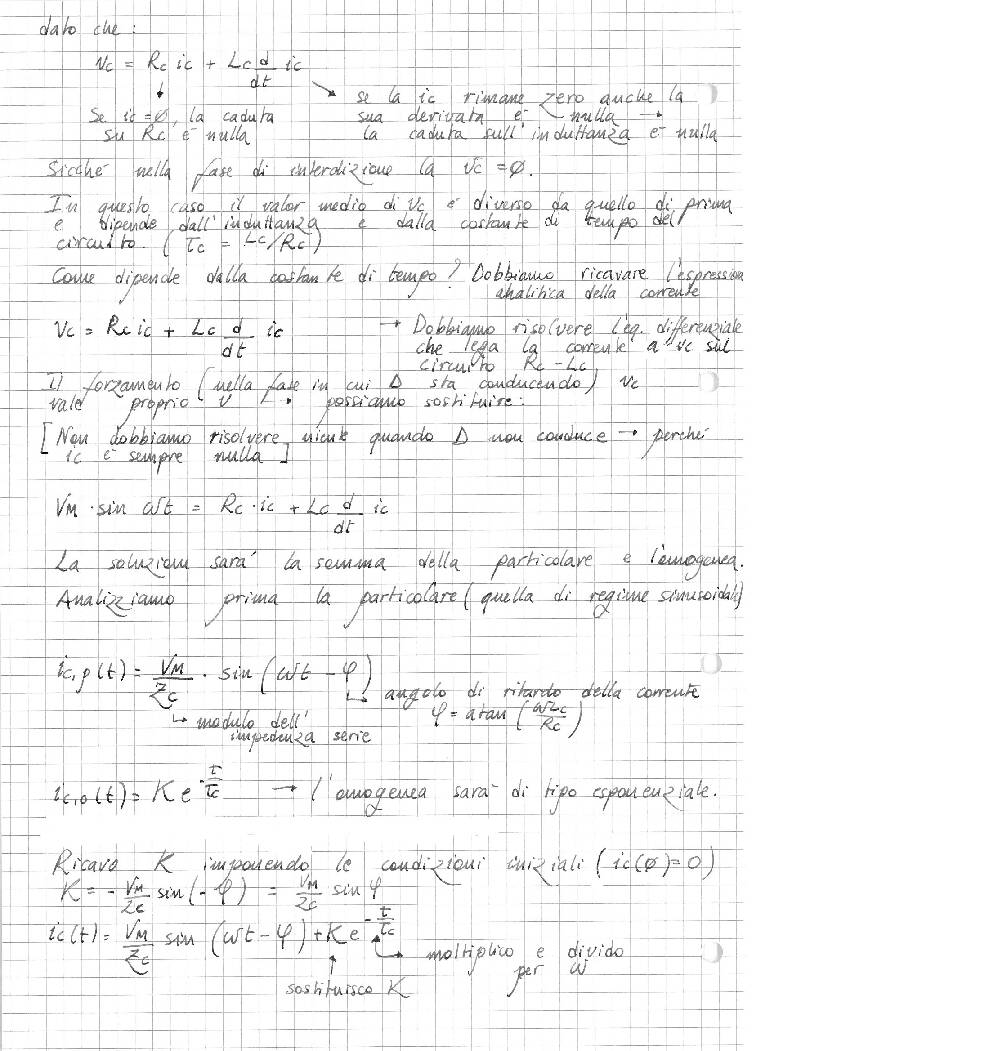 dato che :
vc = Rc ic + Lc d/dt ic
↓ Se ic = ∅, la caduta su Rc è nulla
→ se la ic rimane zero anche la
sua derivata è nulla →
la caduta sull'induttanza è nulla
Sicché nella fase di interdizione la vc = ∅.
In questo caso il valor medio di vc è diverso da quello di prima
e dipende dall'induttanza e dalla costante di tempo del
circuito. ( τc = Lc/Rc )
Come dipende dalla costante di tempo? Dobbiamo ricavare l'espressione
analitica della corrente
vc = Rc ic + Lc d/dt ic
→ Dobbiamo risolvere l'eq. differenziale
che lega la corrente a vc sul
circuito Rc - Lc
Il forzamento ( nella fase in cui Δ sta conducendo ) vc
vale proprio v ↳ possiamo sostituire:
[ Non dobbiamo risolvere niente quando Δ non conduce → perché
ic è sempre nulla ]
VM · sin ωt = Rc · ic + Lc d/dt ic
La soluzioni sarà la somma della particolare e l'omogenea.
Analizziamo prima la particolare ( quella di regime sinusoidale)
ic,p(t) = VM/Zc · sin ( ωt - φ )
↳ angolo di ritardo della corrente
φ = atan ( ωLc/Rc )
↳ modulo dell'
impedenza serie
ic,o(t) = K e^-t/τc → l'omogenea sarà di tipo esponenziale.
Ricavo K imponendo le condizioni iniziali ( ic(∅) = 0 )
K = - VM/Zc sin ( - φ ) = VM/Zc sin φ
ic(t) = VM/Zc sin ( ωt - φ ) + K e^-t/τc
↳ moltiplico e divido
per ω
↑ sostituisco K